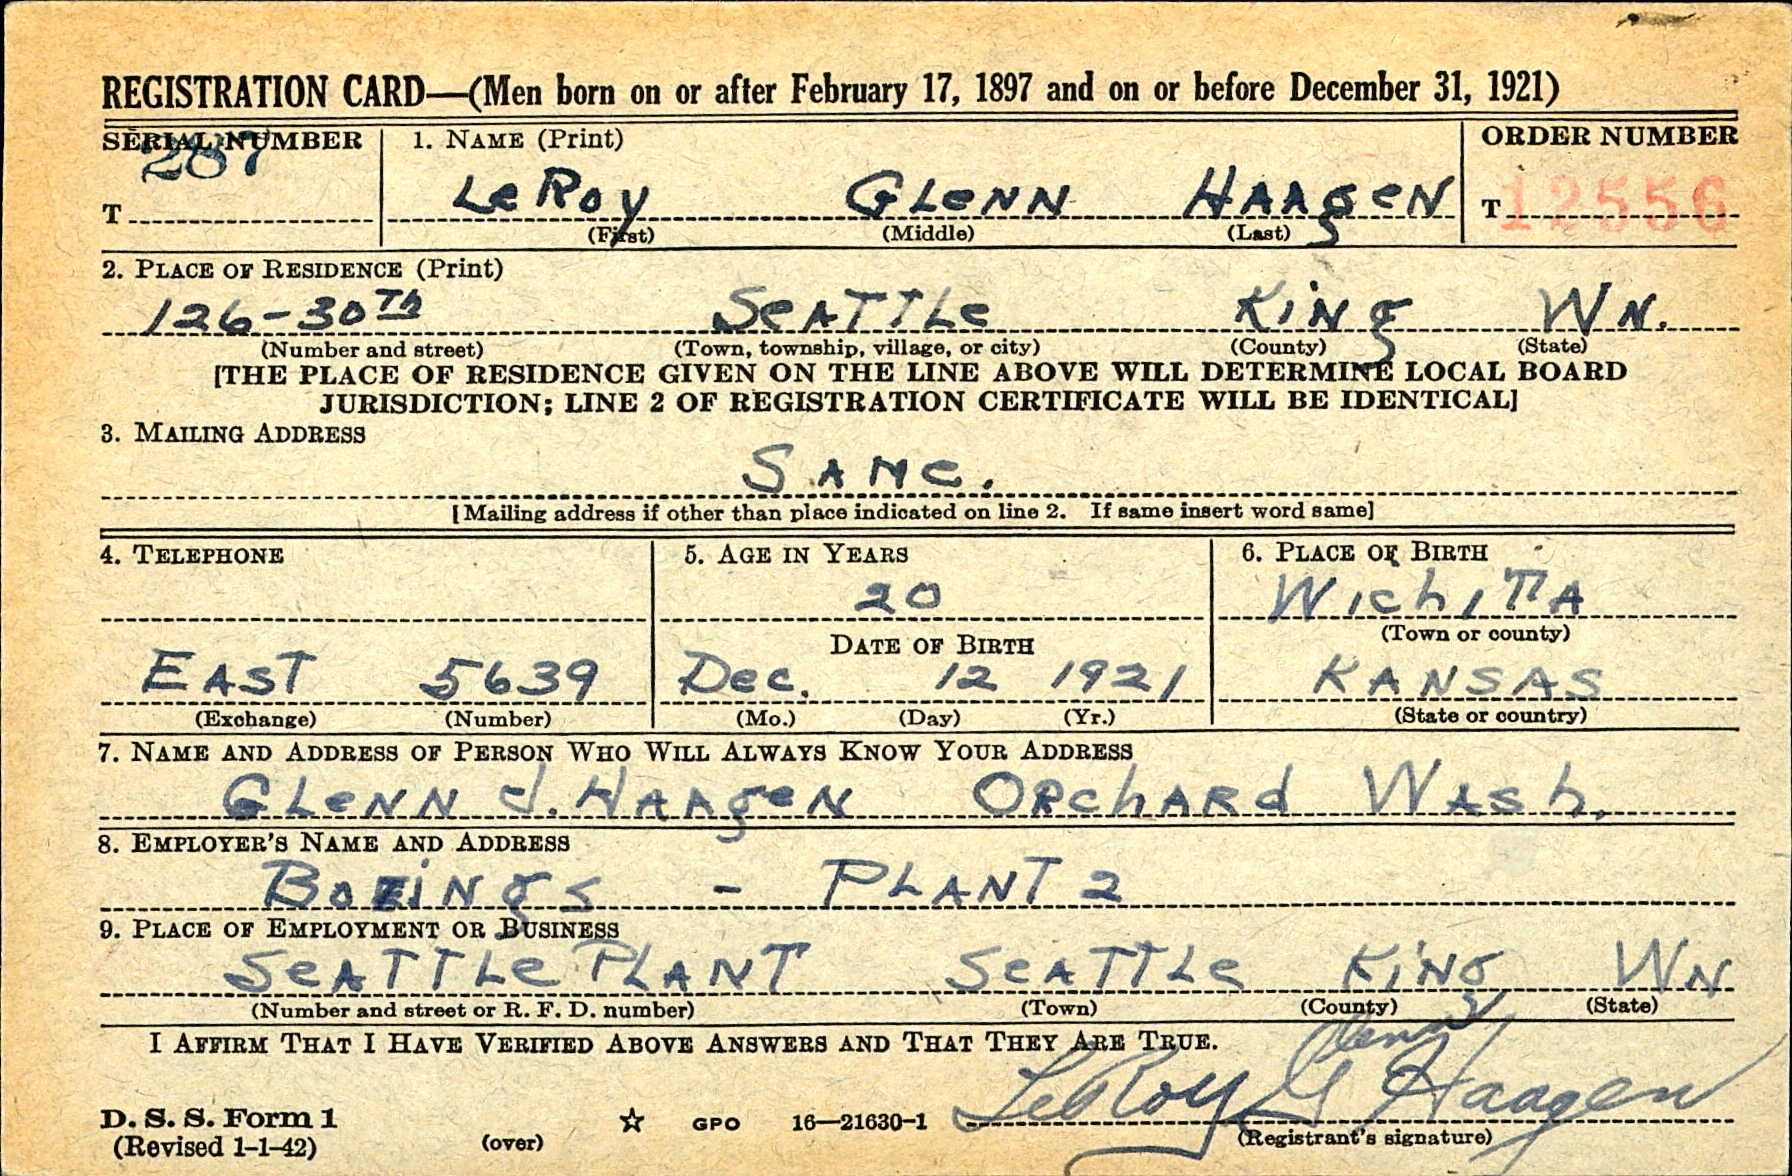 REGISTRATION CARD—(Men born on or after February 17, 1897 and on or before December 31, 1921)
SERIAL NUMBER 1. NAME (Print) ORDER NUMBER
287
T LeRoy GLeNN HAAgeN T 12556
(First) (Middle) (Last)
2. PLACE OF RESIDENCE (Print)
126-30Th SeATTLe KiNg WN.
(Number and street) (Town, township, village, or city) (County) (State)
[THE PLACE OF RESIDENCE GIVEN ON THE LINE ABOVE WILL DETERMINE LOCAL BOARD
JURISDICTION; LINE 2 OF REGISTRATION CERTIFICATE WILL BE IDENTICAL]
3. MAILING ADDRESS
SAMe.
[Mailing address if other than place indicated on line 2. If same insert word same]
4. TELEPHONE 5. AGE IN YEARS 6. PLACE OF BIRTH
20 WichiTTA
DATE OF BIRTH (Town or county)
EAST 5639 Dec. 12 1921 KANSAS
(Exchange) (Number) (Mo.) (Day) (Yr.) (State or country)
7. NAME AND ADDRESS OF PERSON WHO WILL ALWAYS KNOW YOUR ADDRESS
GLeNN J. HAAgeN ORchARd WAsh.
8. EMPLOYER'S NAME AND ADDRESS
BOEiNgS - PLANT 2
9. PLACE OF EMPLOYMENT OR BUSINESS
SeATTLe PLANT SeATTLe KiNg WN
(Number and street or R. F. D. number) (Town) (County) (State)
I AFFIRM THAT I HAVE VERIFIED ABOVE ANSWERS AND THAT THEY ARE TRUE.
LeRoy G Haagen
D. S. S. Form 1
(Revised 1-1-42) (over) GPO 16—21630-1 (Registrant's signature)